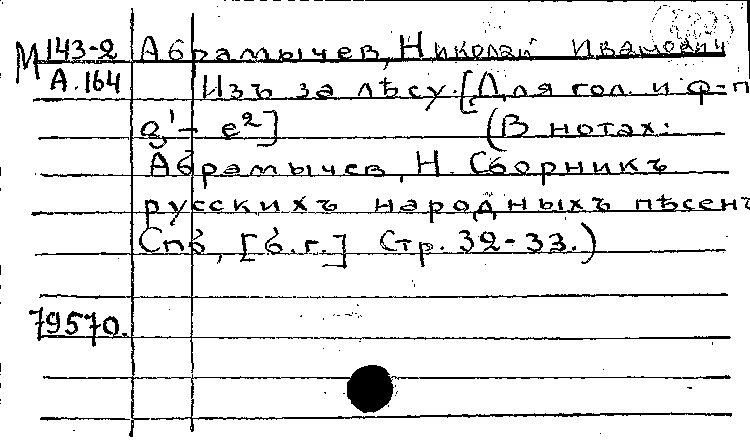 М 143-2 Абрамычев, Николай Иванович
А.164 Изъ за лѣсу. [Для гол. и ф-п
g¹ - e²] (В нотах:
Абрамычев, Н. Сборникъ
русскихъ народныхъ пѣсенъ
Спб, [б.г.] Стр. 32-33.)
79570.